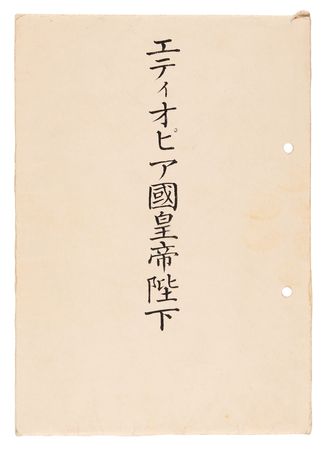 エティオピア國皇帝陛下